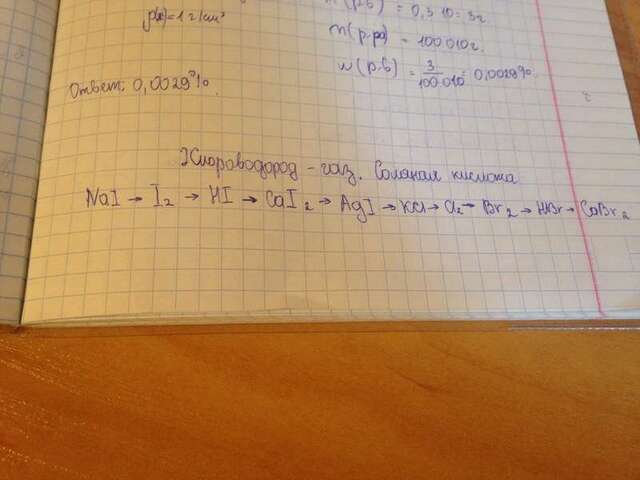 = 0,3·10 = 3г
ρ(в)=1 г/см³
m(р.ра) = 100010г.
w(р.в) = 3/100 010 = 0,0029%.
Ответ: 0,0029%.
Хлороводород - газ. Соляная кислота
NaI → I₂ → HI → CaI₂ → AgI → KCl → Cl₂ → Br₂ → HBr → CaBr₂